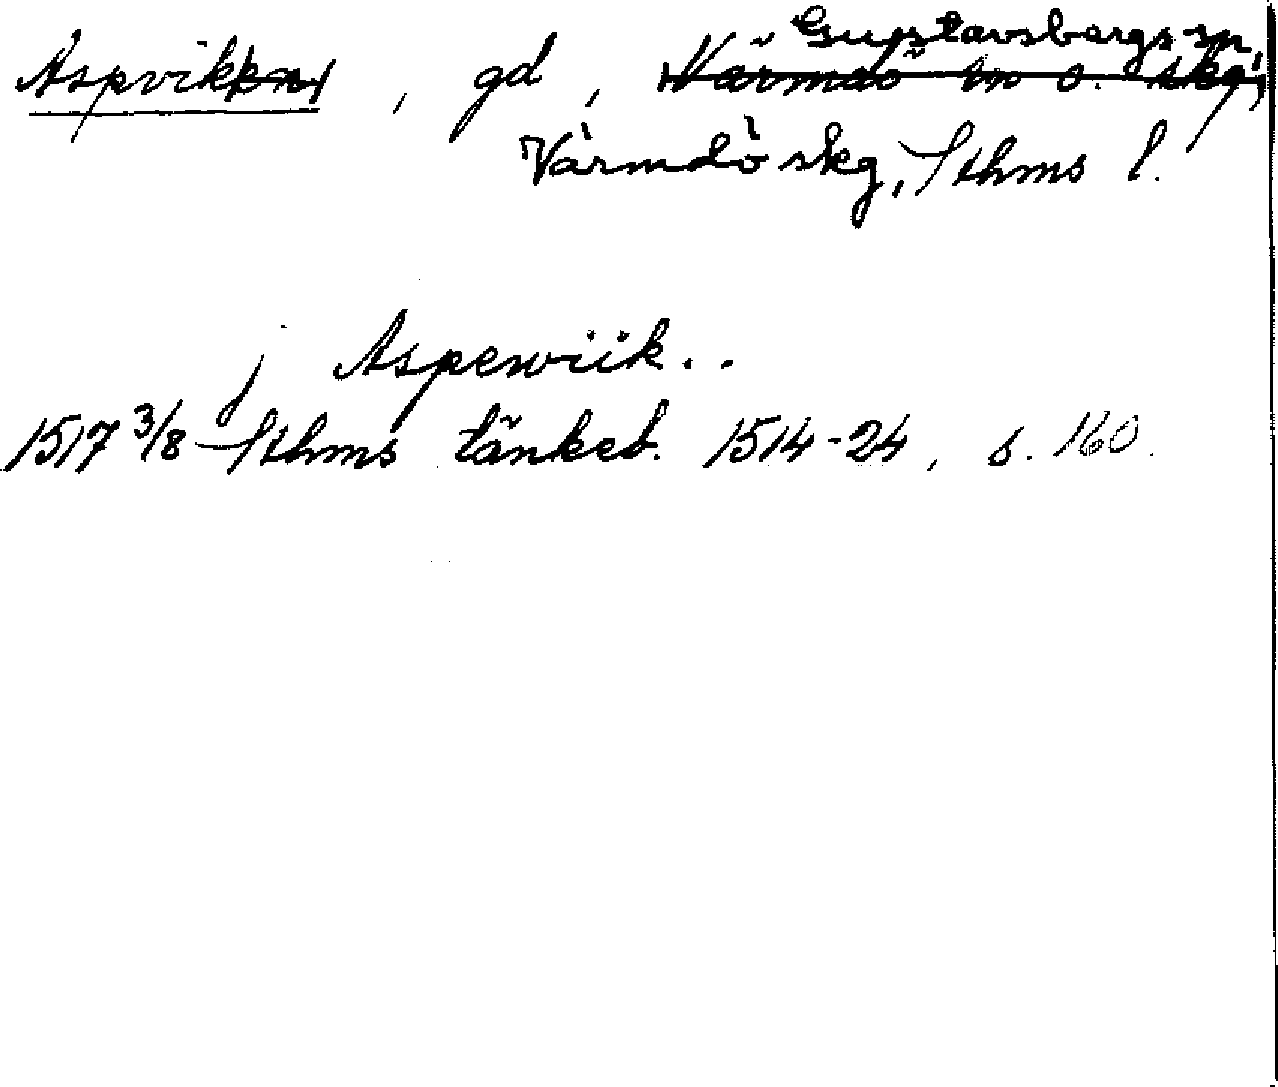 Gustavsbergs sn,
Aspvikken, gd, Värmdö sn o. skg,
Värmdö skg, Sthms l.
j Aspewiik..
1517 3/8 Sthms tänkeb. 1514-24, s. 160.